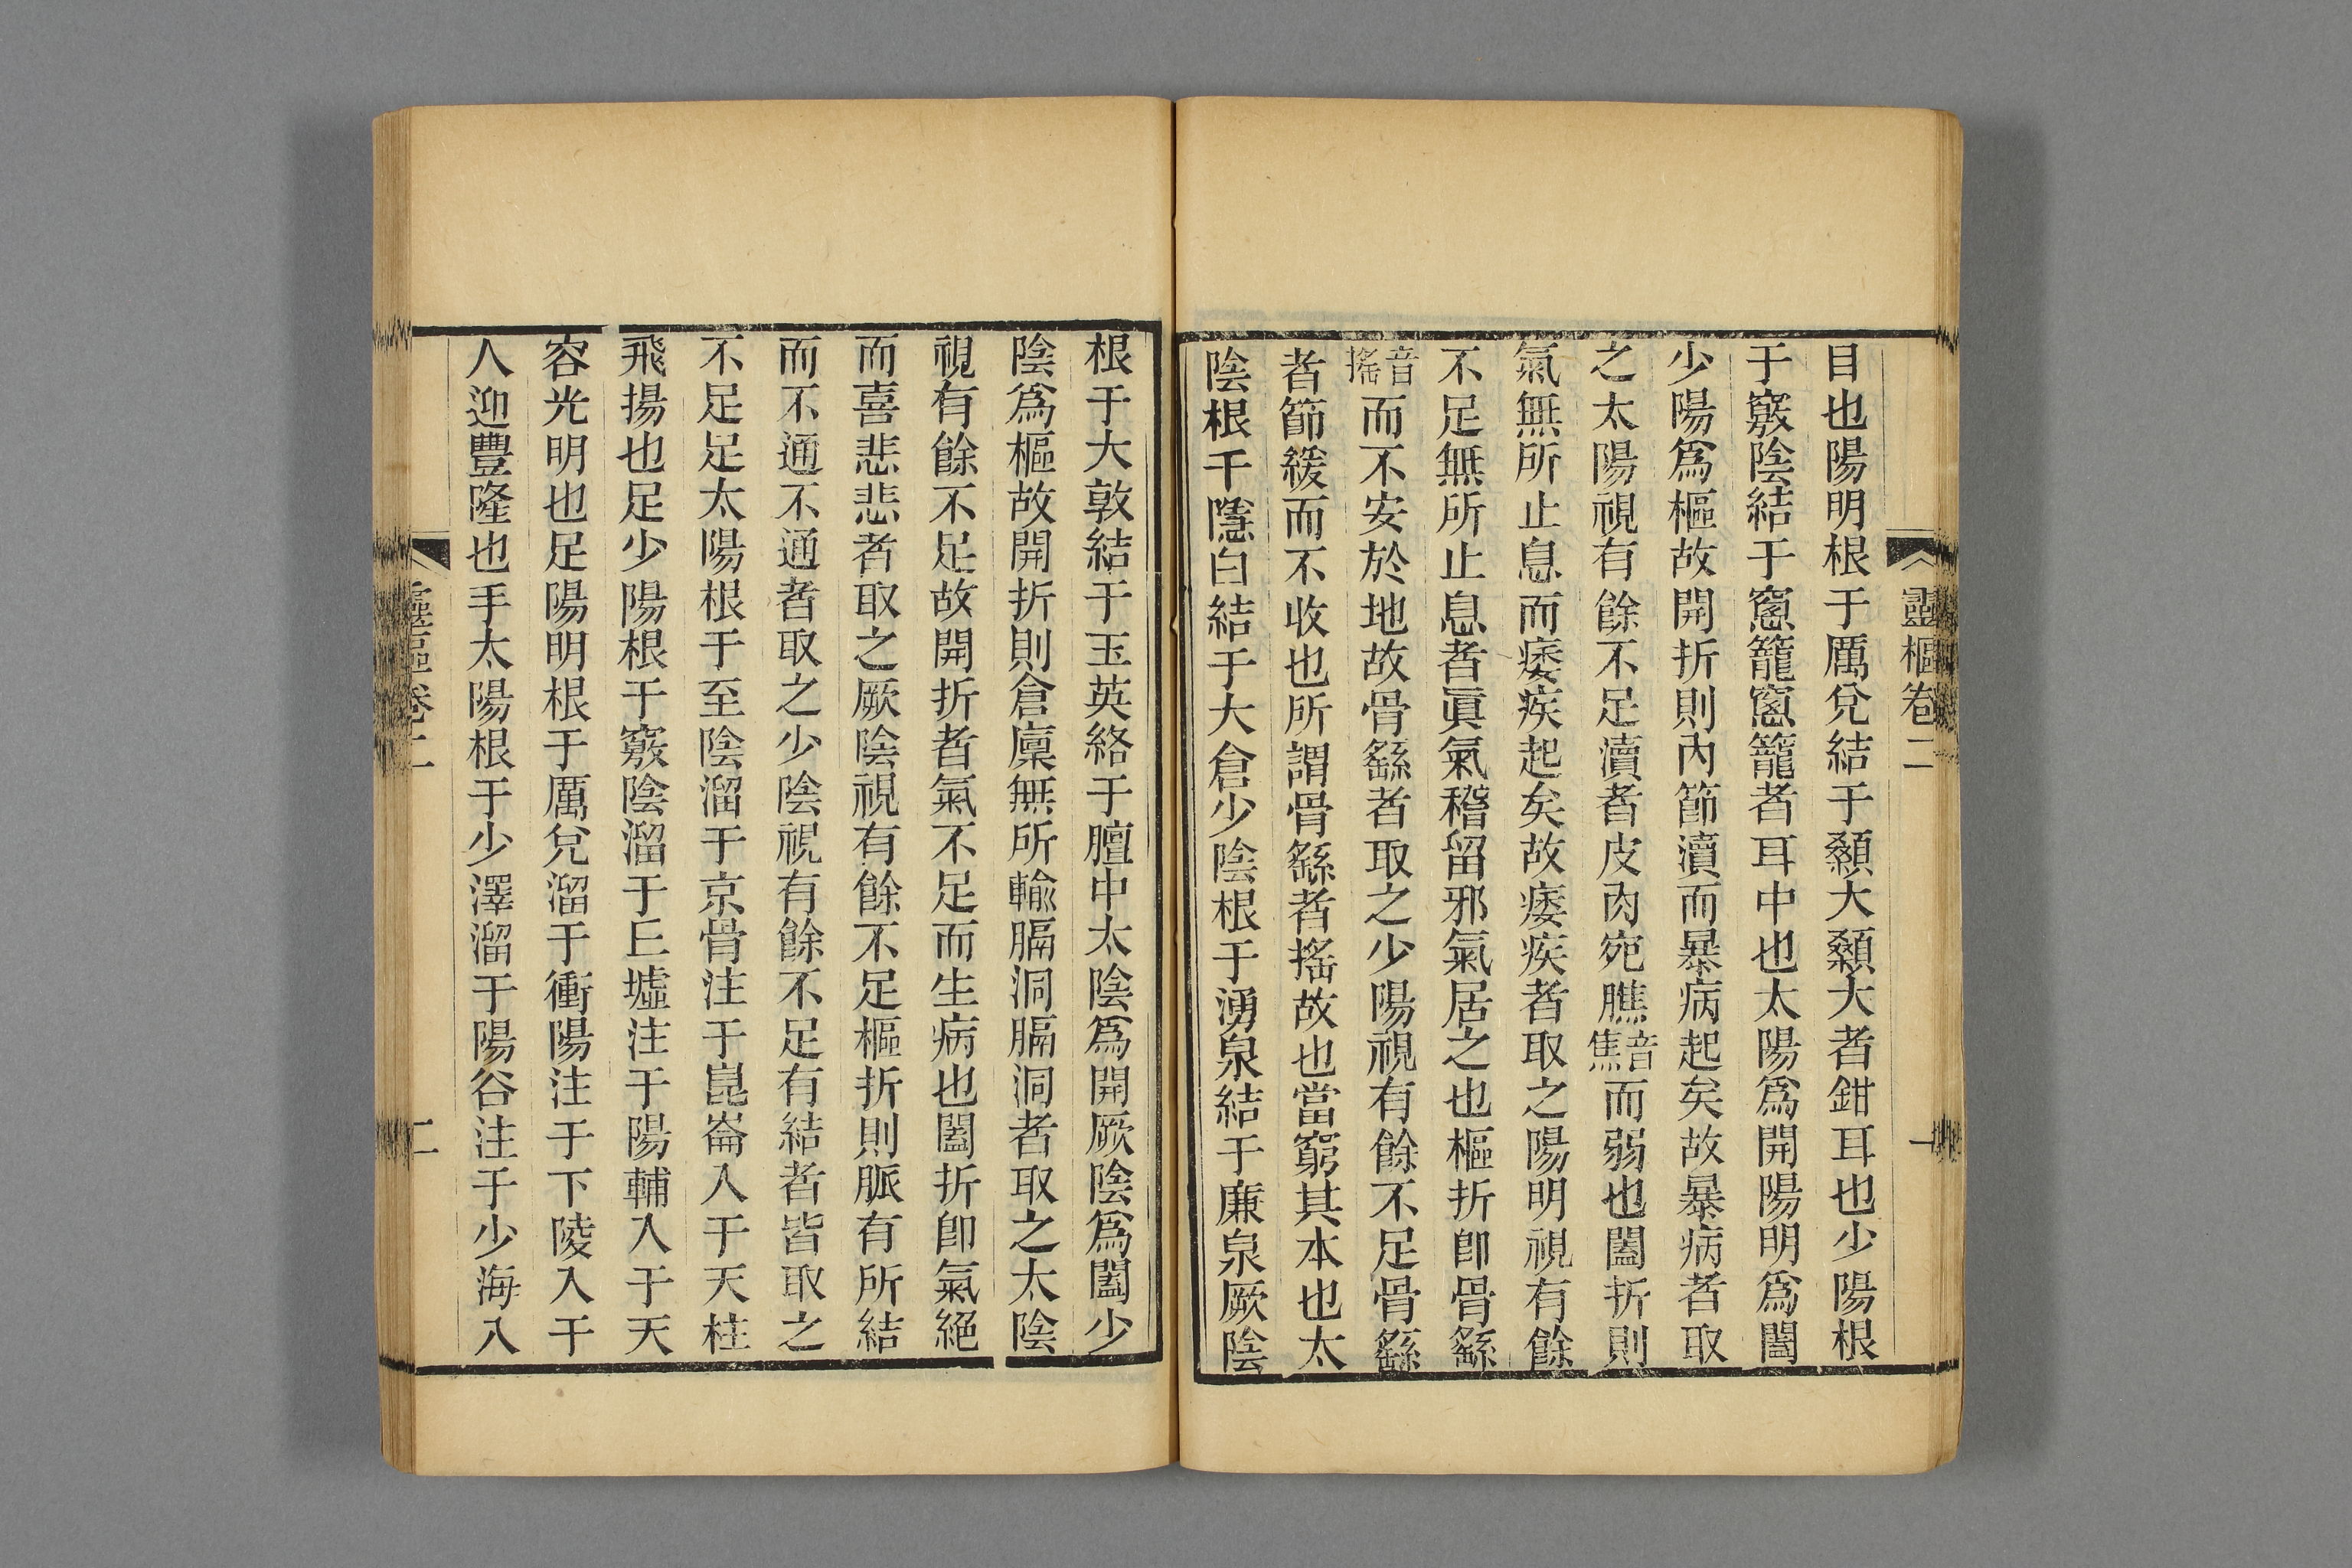 靈樞卷二
一
目也陽明根于厲兌結于顙大顙大者鉗耳也少陽根
于竅陰結于窻籠窻籠者耳中也太陽爲開陽明爲闔
少陽爲樞故開折則內節瀆而暴病起矣故暴病者取
之太陽視有餘不足瀆者皮肉宛膲音焦而弱也闔折則
氣無所止息而痿疾起矣故痿疾者取之陽明視有餘
不足無所止息者眞氣稽留邪氣居之也樞折卽骨繇
音搖而不安於地故骨繇者取之少陽視有餘不足骨繇
者節緩而不收也所謂骨繇者搖故也當窮其本也太
陰根于隱白結于大倉少陰根于湧泉結于廉泉厥陰
根于大敦結于玉英絡于膻中太陰爲開厥陰爲闔少
陰爲樞故開折則倉廩無所輸膈洞膈洞者取之太陰
視有餘不足故開折者氣不足而生病也闔折卽氣絕
而喜悲悲者取之厥陰視有餘不足樞折則脈有所結
而不通不通者取之少陰視有餘不足有結者皆取之
不足足太陽根于至陰溜于京骨注于崑崙入于天柱
飛揚也足少陽根于竅陰溜于丘墟注于陽輔入于天
容光明也足陽明根于厲兌溜于衝陽注于下陵入于
人迎豐隆也手太陽根于少澤溜于陽谷注于少海入
靈樞卷二
二